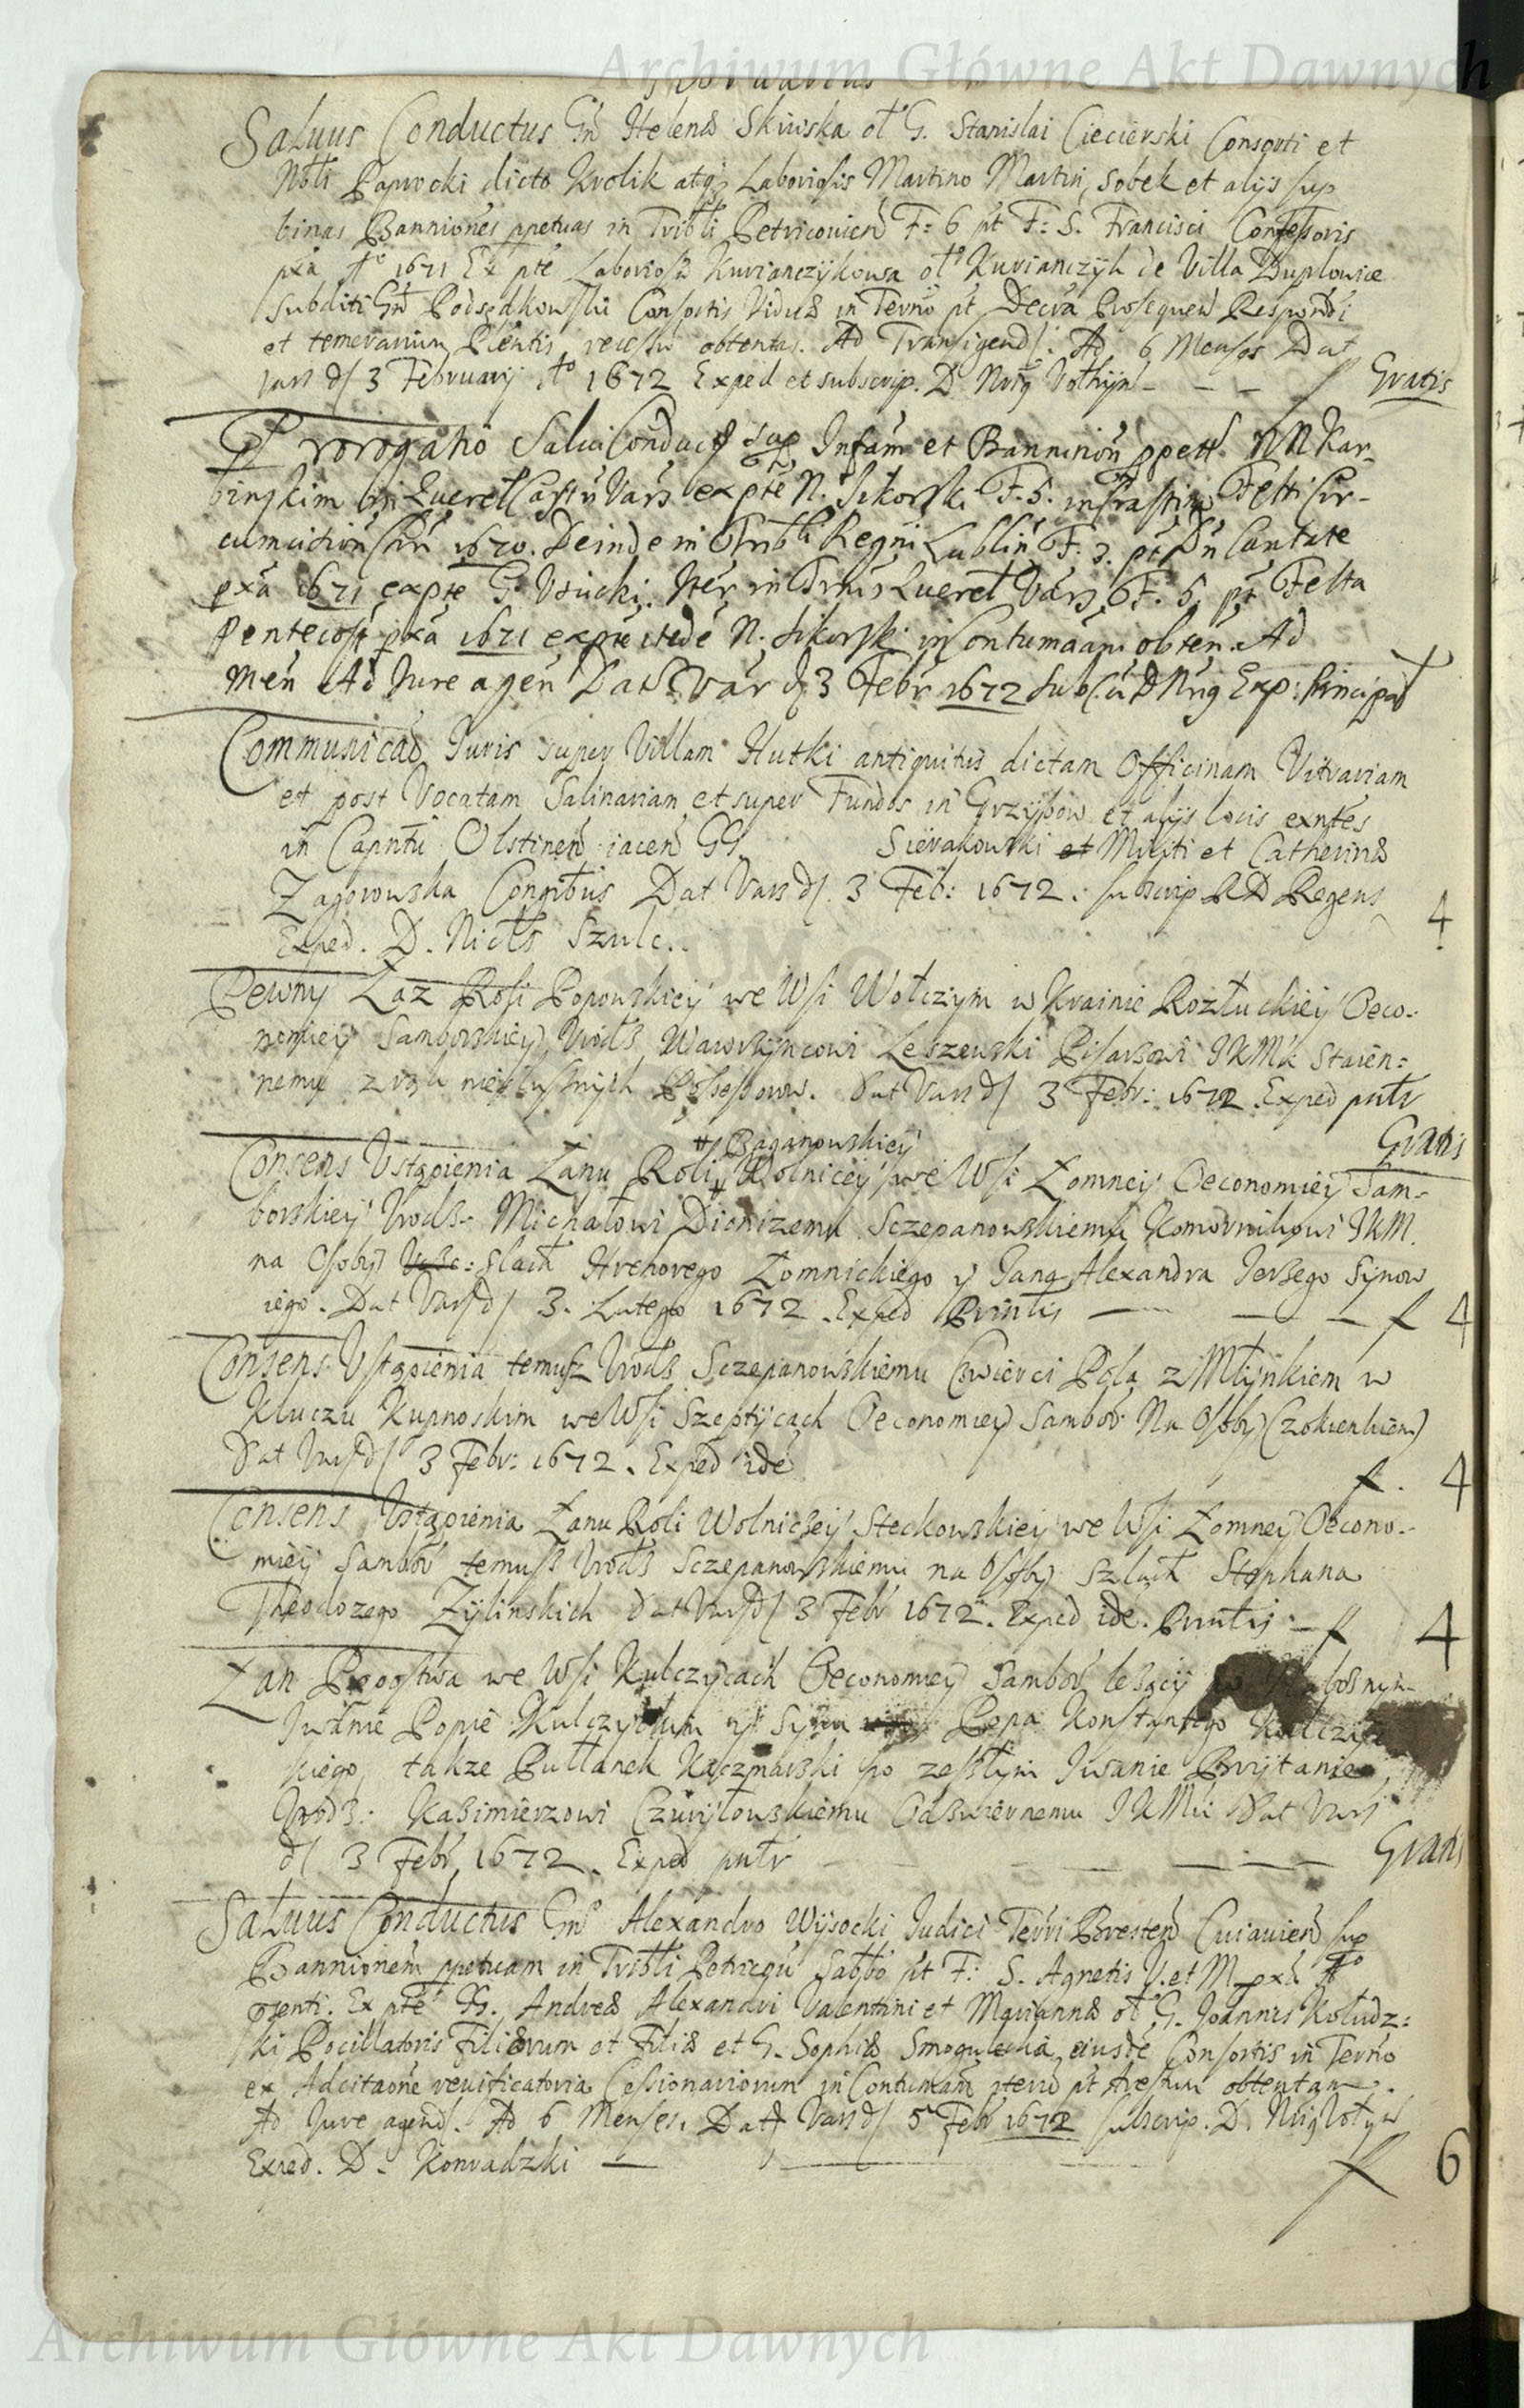 Archiwum Główne Akt Dawnych
Saluus Conductus Gn Helenæ Skiwska ol G. Stanislai Ciecierski Consorti et
Nbli Paprocki dicto Krolik atq Laboriosis Martino Martin, Sobek et alijs sup
binas Banniones ppetuas in Tribli Petricouien F: 6 pt F: S. Francisci Confessoris
pxa Ao 1671 Ex pte Laboriosæ Kurianczykowa ol Kurianczyk de Villa Duplowice
Subditi Gn Podsędkowski Consortis Viduæ in Terno pt Decra Prosequen Respondi
et temerarium Plentis recessu obtentas. Ad Transigend: Ad 6 Menses Dat
Vars d 3 February Ao 1672 Exped et subscrip. D. Nrig Voltyn - - - f Gratis
Prorogatio Salui Conduct sup Infam et Bannition ppett. NN Kar-
binskim in Querel Castri Vars ex pte N. Sikorski F. 5. in Crastino Festi Cir-
cumcision Chri 1670. Deinde in Tribli Regni Lublin F. 3. pt Dn Cantate
pxa 1671 ex pte G. Vsucki. Iter in Trnis Querel Vars. F. 5. pt Festa
Pentecost pxa 1671 ex pte itede N. Sikorski in Contumaciam obten. Ad
Men Ad Jure agen Dat Var d 3 Febr 1672 Sub Cu D Nrig Exp: Principal
Communicao Juris super Villam Hutki antiquitus dictam Officinam Vitrariam
et post Vocatam Salinariam et super Fundos in Grzybow et alijs locis exntes
in Capntu Olstinen iacen GG. Sierakowski et Militi et Catherinæ
Zagorowska Congibus Dat Vars d. 3 Feb: 1672. subscrip RD Regens
Exped. D. Nicls Szulc. 4
Pewny Łaz Roli Popowskiey we Wsi Wołczym w Krainie Rozłuckiey Oeco-
nomiey Samborskiey, Urodz Wawrzyncowi Leszewski Pisarzowi JKMci Staien:
nemu z rąk niesłusznych Possessorow. Dat Vars d 3 Febr: 1672. Exped pntr
Gratis
# Baganowskiey
Consens Vstąpienia Łanu Roli Wolnicey we Wsi Łomney Oeconomiey Sam-
borskiey Urodz. Michałowi Dionizemu Sczepanowskiemu Komornikowi JKM.
na Osoby Urze: Slach Hrehorego Łomnickiego y Jana Alexandra Jerzego Synow
iego. Dat Vars d 3. Lutego 1672. Exped Printis — — — f 4
Consens Vstąpienia temusz Urodz Sczepanowskiemu Cwierci Pola z Młynkiem w
Kluczu Kupnoskim we Wsi Szeptycach Oeconomiey Sambor. Na Osoby (z okienkiem)
Dat Vars d 3 Febr: 1672. Exped ide f. 4
Consens Vstąpienia Łanu Roli Wolniczey Steckowskiey we Wsi Łomney Oecono-
miey Sambor temusz Urodz Sczepanowskiemu na Osoby Szlach Stephana
Theodozego Zylinskich Dat Vars d 3 Febr 1672. Exped ide. Printis - f 4
Łan Popostwa we Wsi Kulczycach Oeconomiey Sambor leżący po
Iwanie Popie Kulczyckim y Synu Popa Konstantego Kulczyc
kiego, takze Pułłanek Kaczmarski po zeszłym Iwanie Brytanie,
Urodz: Kazimierzowi Czuryłowskiemu Odzwiernemu JKMci Dat Vars
d 3 Febr, 1672. Exped pntr — — — Gratis
Saluus Conductus Gn Alexandro Wysocki Judici Terri Bresten Cuiauien sup
Bannionem ppetuam in Tribli Petricou Sabbo pt F: S. Agnetis V. et M. pxa Ao
pnti. Ex pte GG. Andreæ Alexandri Valentini et Mariannæ ol G. Joannis Koludz:
ki Pocillatoris Filiorum et Filiæ et G. Sophiæ Smogulecka eiusde Consortis in Terno
ex Adcitaone reuificatoria Cessionariorum in Contumam pt Arestum obtentam.
Ad Jure agend. Ad 6 Menses. Dat Vars d 5 Febr 1672 subscrip. D. Nrig Voltyn
Exped. D. Konradzki — — — f 6
Archiwum Główne Akt Dawnych